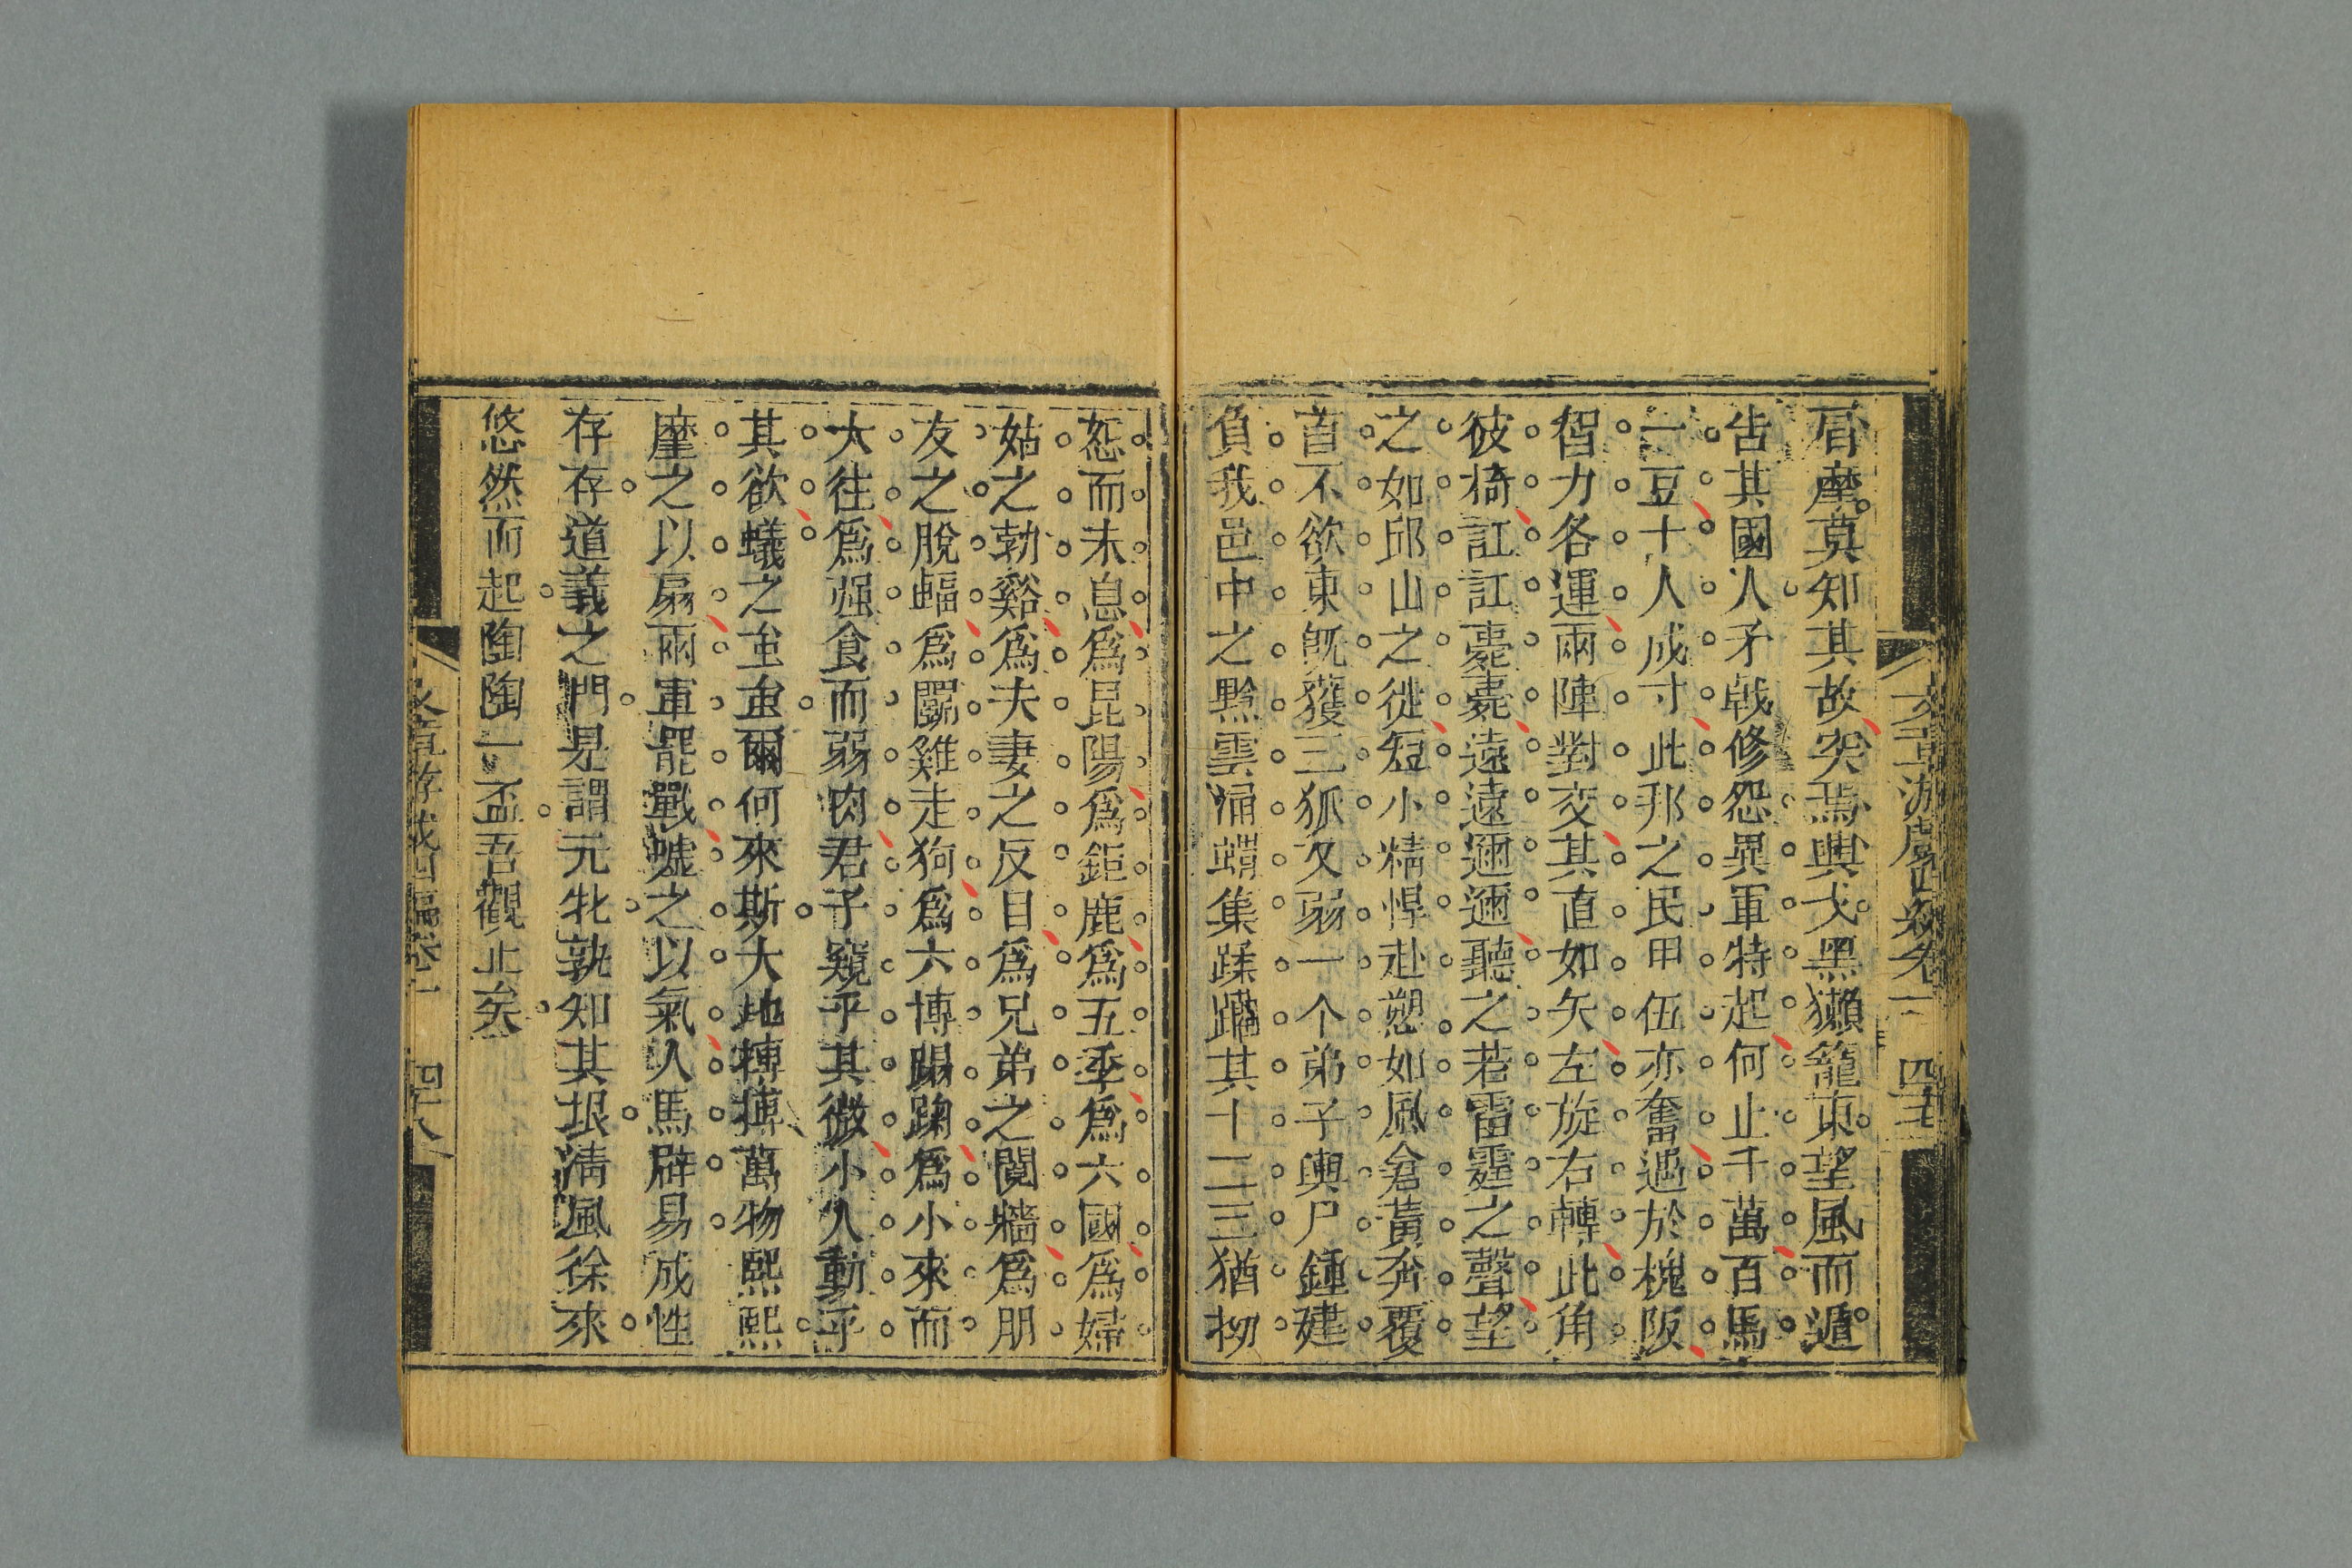 盾摩莫知其故突焉輿戈黑獺籠東望風而遁
告其國人矛戟修怨異軍特起何止千萬百馬
一豆十人成寸此邢之民甲伍亦奮遇於槐阪
智力各運兩陣對交其直如矢左旋右轉此角
彼掎訌訌薨薨遠遠邇邇聽之若雷霆之聲望
之如邱山之徙短小精悍赴愬如風倉黃奔覆
首不欲東旣獲三狐又弱一个弟子輿尸鍾建
負我邑中之黔雲涌蝟集蹂躪其十二三猶拗
怒而未息爲昆陽爲鉅鹿爲五季爲六國爲婦
姑之勃谿爲夫妻之反目爲兄弟之鬩牆爲朋
友之脫輻爲鬭雞走狗爲六博蹋踘爲小來而
大往爲强食而弱肉君子窺乎其微小人動乎
其欲蟻之䖝䖝爾何來斯大地摶摶萬物熙熙
麾之以扇兩軍罷戰噓之以氣人馬辟易成性
存存道義之門是謂元牝孰知其垠淸風徐來
悠然而起陶陶一盃吾觀止矣
四十八